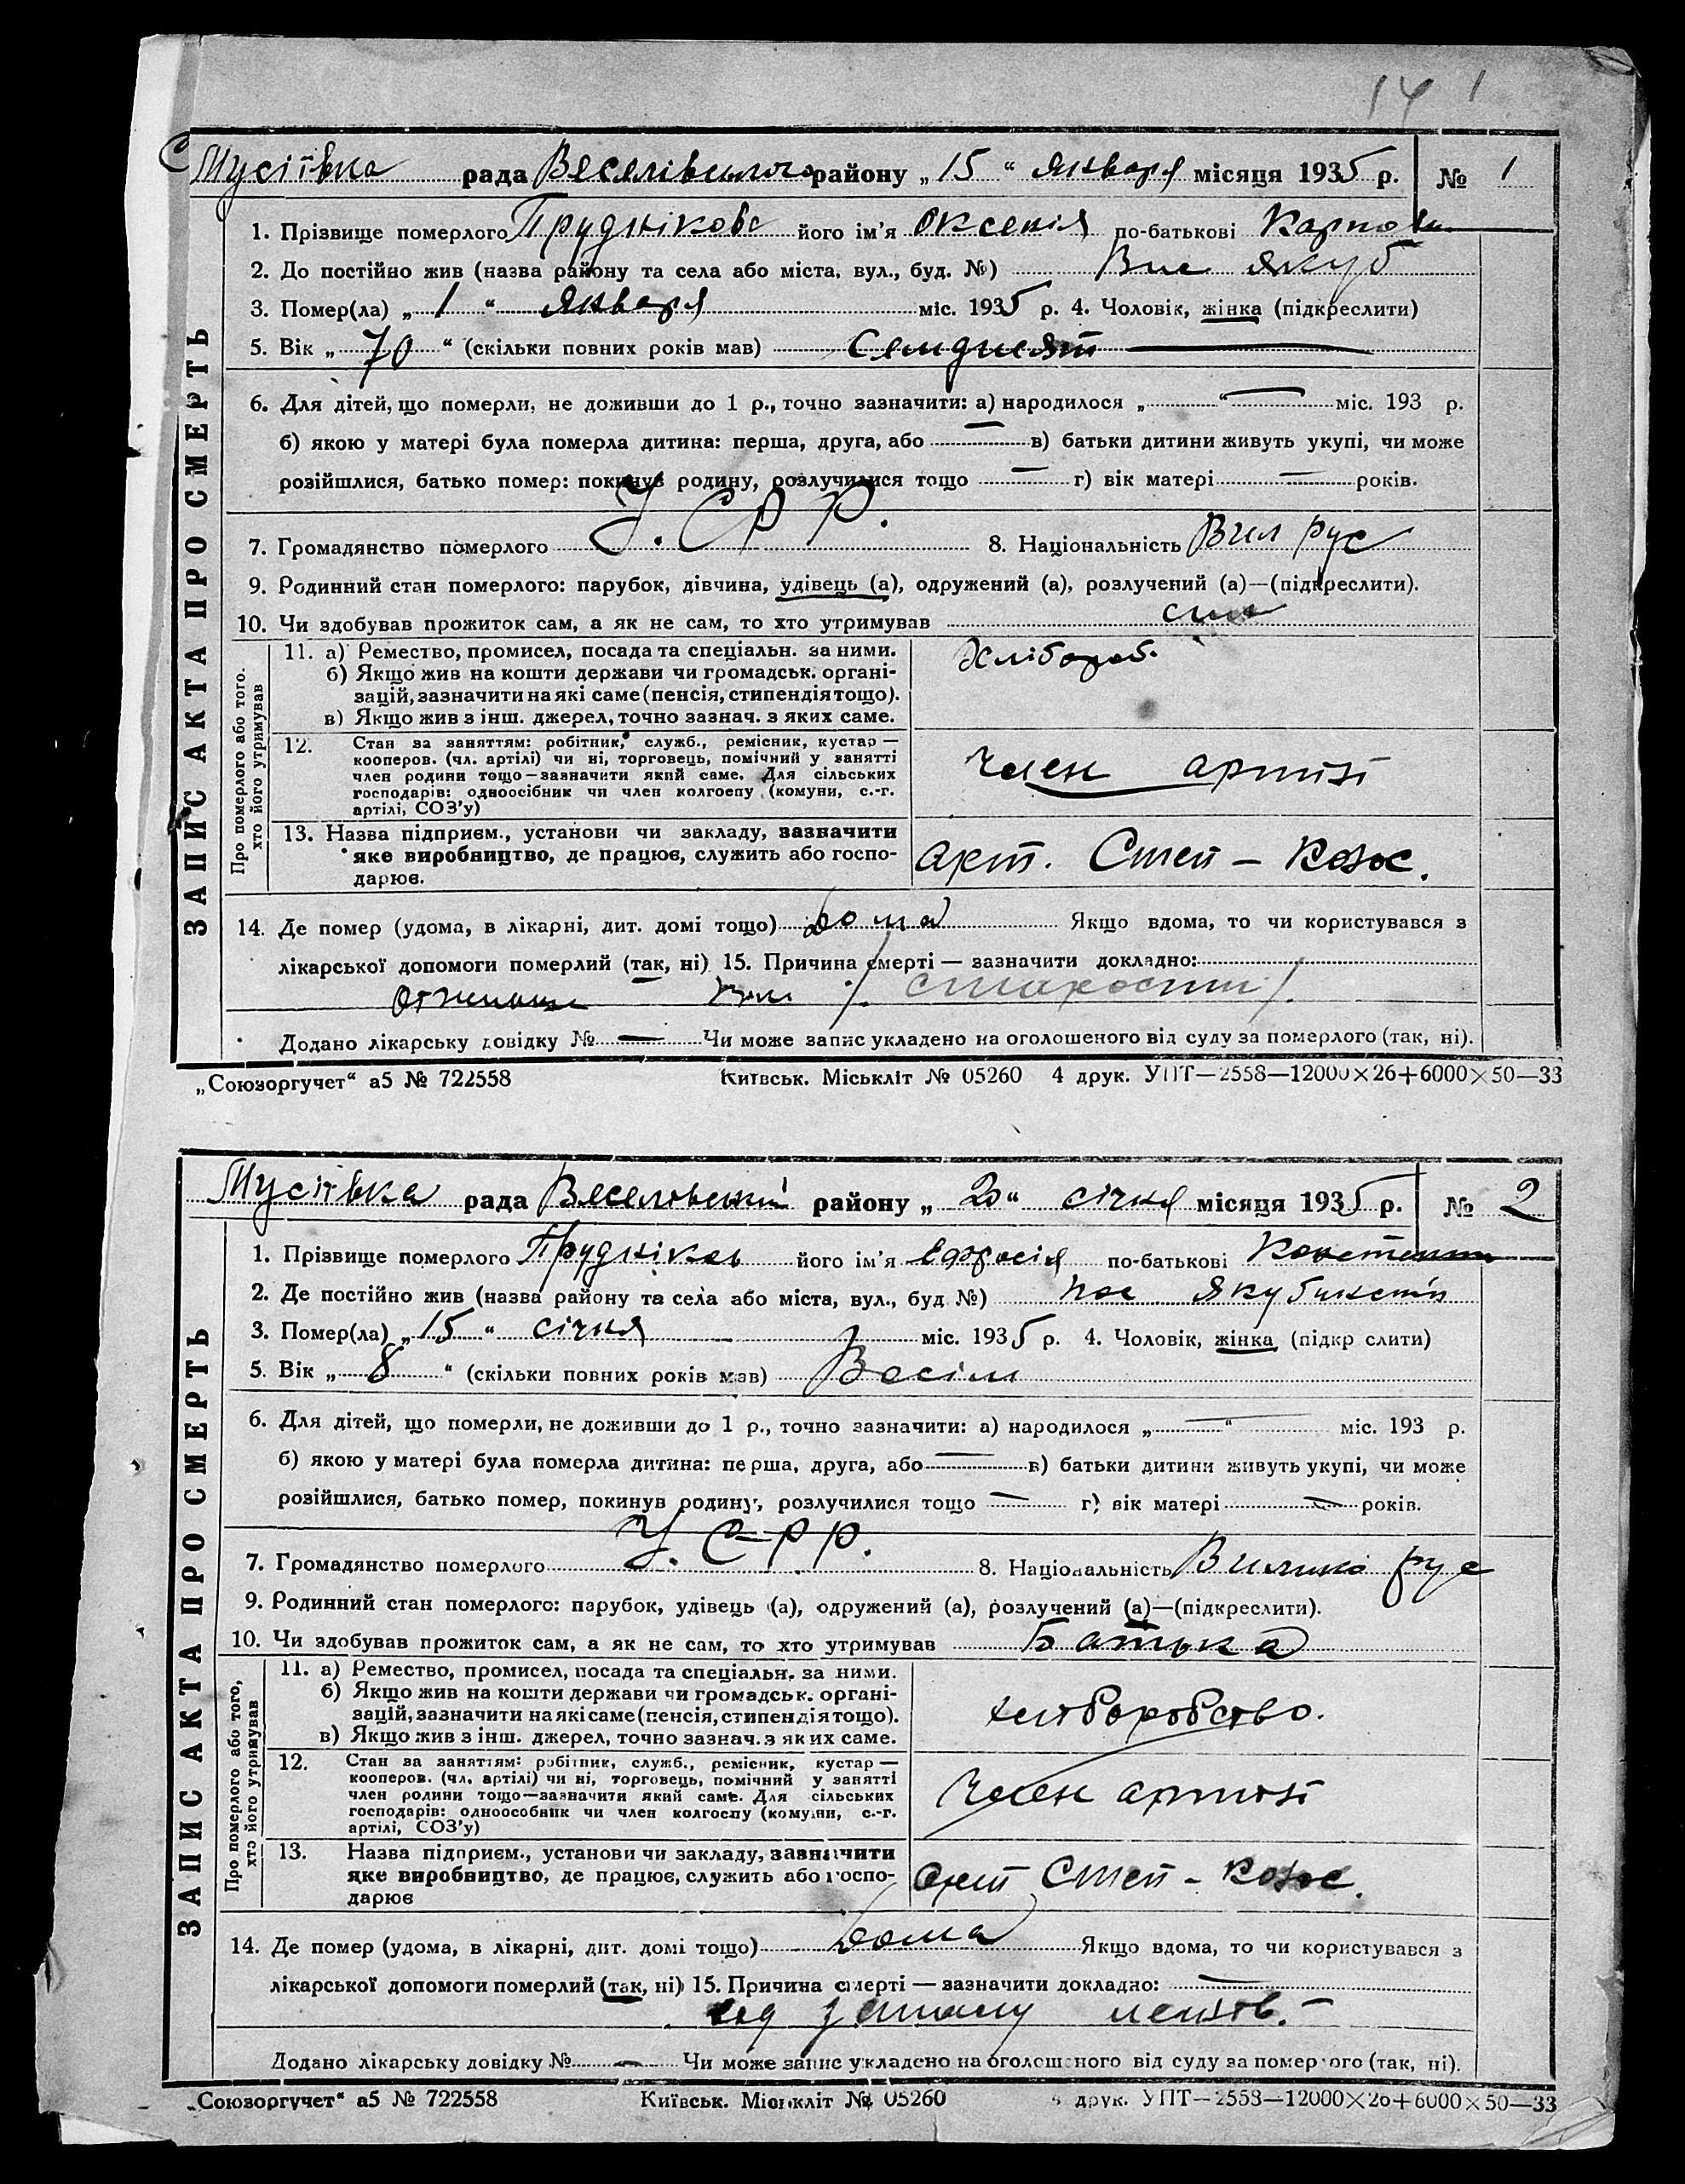 14 1
Мусіївка рада Веселівського району „15“ января місяця 1935 р. № 1
1. Прізвище померлого Пруднікова його ім'я Оксенія по-батькові Карповн
2. До постійно жив (назва району та села або міста, вул., буд. №) Якуб
3. Помер(ла) „1“ января міс. 1935 р. 4. Чоловік, жінка (підкреслити)
5. Вік „70“ (скільки повних років мав) Семдисят
6. Для дітей, що померли, не доживши до 1 р., точно зазначити: а) народилося „ “ міс. 193 р.
б) якою у матері була померла дитина: перша, друга, або — в) батьки дитини живуть укупі, чи може
розійшлися, батько помер: покинув родину, розлучилися тощо — г) вік матері — років.
7. Громадянство померлого У.СРР. 8. Національність Вил рус
9. Родинний стан померлого: парубок, дівчина, удівець (а), одружений (а), розлучений (а)—(підкреслити).
10. Чи здобував прожиток сам, а як не сам, то хто утримував син
ЗАПИС АКТА ПРО СМЕРТЬ
Про померлого або того.
хто його утримував
11. а) Ремество, промисел, посада та спеціальн. за ними.
б) Якщо жив на кошти держави чи громадськ. органі-
зацій, зазначити на які саме (пенсія, стипендія тощо).
в) Якщо жив з інш. джерел, точно зазнач. з яких саме.
Хлібороб.
12. Стан за заняттям: робітник, служб., ремісник, кустар —
кооперов. (чл. артілі) чи ні, торговець, помічний у занятті
член родини тощо — зазначити який саме. Для сільських
господарів: одноосібник чи член колгоспу (комуни, с.-г.
артілі, СОЗ'у)
Член артілі
13. Назва підприєм., установи чи закладу, зазначити
яке виробництво, де працює, служить або госпо-
дарює.
Арт. Степ – Колос.
14. Де помер (удома, в лікарні, дит. домі тощо) дома Якщо вдома, то чи користувався з
лікарської допомоги померлий (так, ні) 15. Причина смерті — зазначити докладно:
/. старости /.
Додано лікарську довідку № — Чи може запис укладено на оголошеного від суду за померлого (так, ні).
„Союзоргучет“ а5 № 722558 Київськ. Міськліт № 05260 4 друк. УПТ—2558—12000×26+6000×50—33
Мусіївка рада Веселовський району „20“ січня місяця 1935 р. № 2
1. Прізвище померлого Прудніков його ім'я Ефросія по-батькові Констентин
2. Де постійно жив (назва району та села або міста, вул., буд №) пос
3. Помер(ла) „15“ січня міс. 1935 р. 4. Чоловік, жінка (підкр слити)
5. Вік „8“ (скільки повних років мав) Восім
6. Для дітей, що померли, не доживши до 1 р., точно зазначити: а) народилося „ “ міс. 193 р.
б) якою у матері була померла дитина: перша, друга, або — в) батьки дитини живуть укупі, чи може
розійшлися, батько помер, покинув родину, розлучилися тощо — г) вік матері — років.
7. Громадянство померлого У.СРР. 8. Національність Вилико рус
9. Родинний стан померлого: парубок, удівець (а), одружений (а), розлучений (а)—(підкреслити).
10. Чи здобував прожиток сам, а як не сам, то хто утримував Батька
ЗАПИС АКТА ПРО СМЕРТЬ
Про померлого або того,
хто його утримував
11. а) Ремество, промисел, посада та спеціальн. за ними.
б) Якщо жив на кошти держави чи громадськ. органі-
зацій, зазначити на які саме (пенсія, стипендія тощо).
в) Якщо жив з інш. джерел, точно зазнач. з яких саме.
хліборобство.
12. Стан за заняттям: робітник, служб., ремісник, кустар —
кооперов. (чл. артілі) чи ні, торговець, помічний у занятті
член родини тощо—зазначити який саме. Для сільських
господарів: одноособник чи член колгоспу (комуни, с.-г.
артілі, СОЗ'у)
Член артілі
13. Назва підприєм., установи чи закладу, зазначити
яке виробництво, де працює, служить або госпо-
дарює
Арт Степ - Колос.
14. Де помер (удома, в лікарні, дит. домі тощо) Дома Якщо вдома, то чи користувався з
лікарської допомоги померлий (так, ні) 15. Причина смерті — зазначити докладно: —
Додано лікарську довідку № — Чи може запис укладено на оголошеного від суду за померлого (так, ні).
„Союзоргучет“ а5 № 722558 Київськ. Міськліт № 05260 4 друк. УПТ—2558—12000×26+6000×50—33